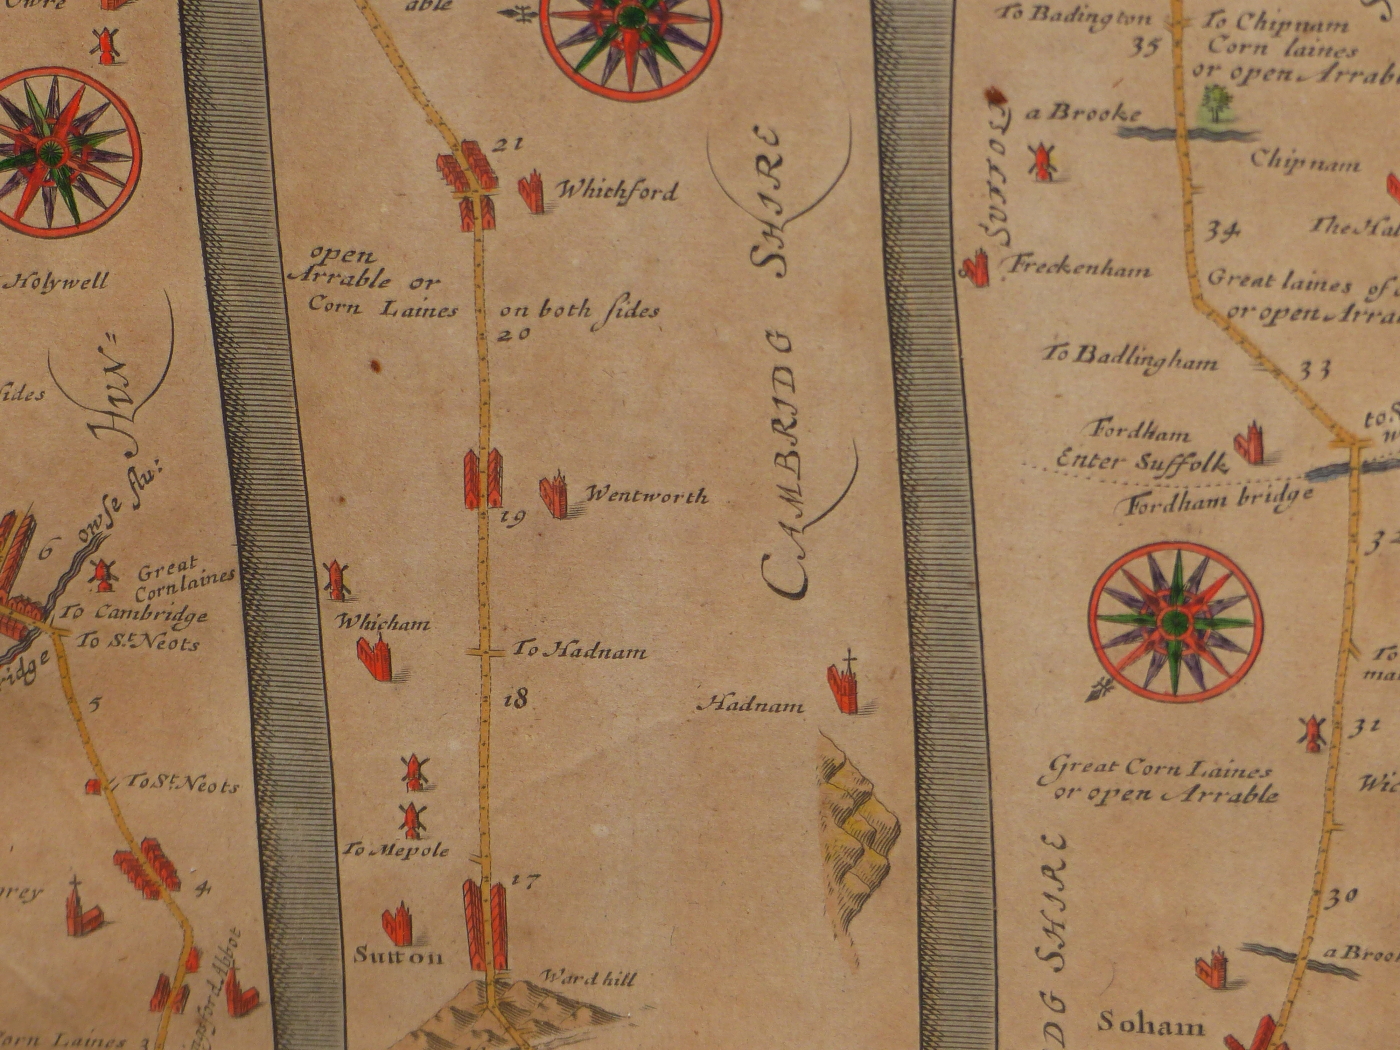 Holywell
HUN=
sides
owse flu:
6
Great
Corn laines
To Cambridge
To St. Neots
5
To St. Neots
4
Corn Laines
3
able
21
Whichford
open
Arrable or
Corn Laines
on both sides
20
Wentworth
19
Whicham
To Hadnam
18
Hadnam
To Mepole
17
Sutton
Ward hill
CAMBRIDG SHIRE
To Badington
35
To Chipnam
Corn laines
or open Arrab
a Brooke
Chipnam
34
Freckenham
Great laines of
or open Arra
To Badlingham
33
Fordham
Enter Suffolk
Fordham bridge
32
To
31
Great Corn Laines
or open Arrable
30
a Broo
Soham
DG SHIRE